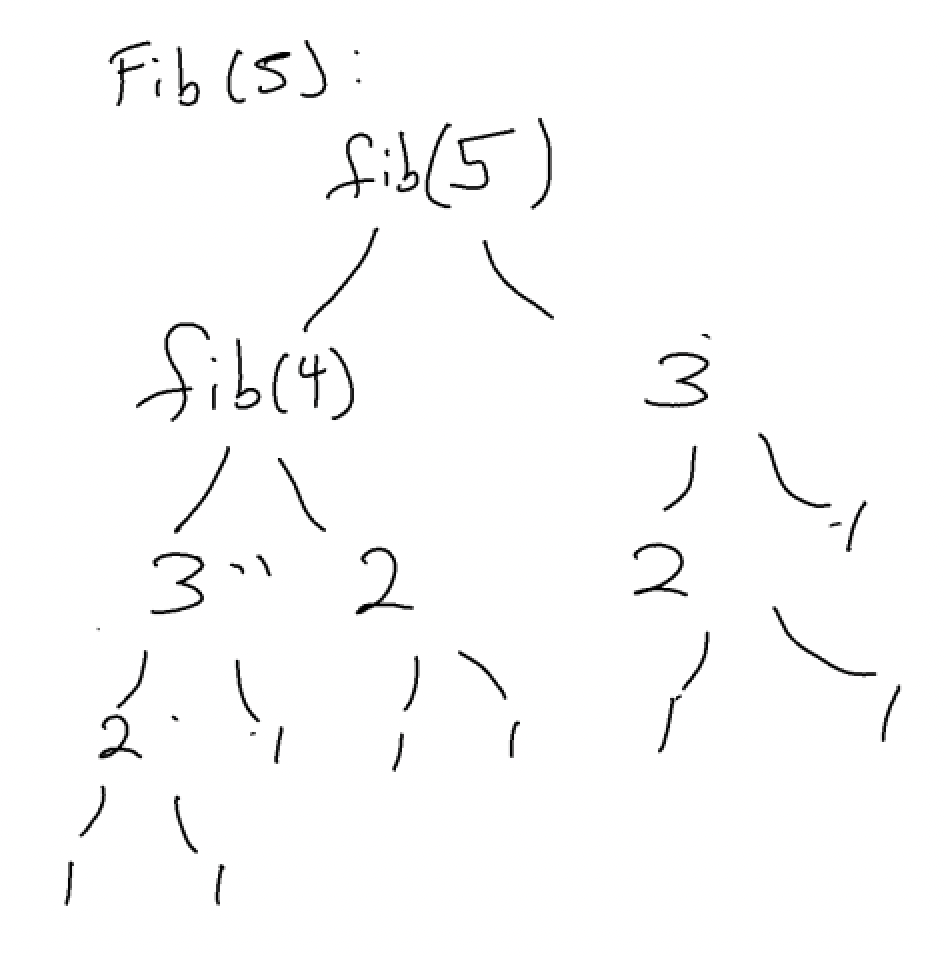 Fib(5):
fib(5)
fib(4) 3
3 2 2 1
2 1 1 1 1 1
1 1